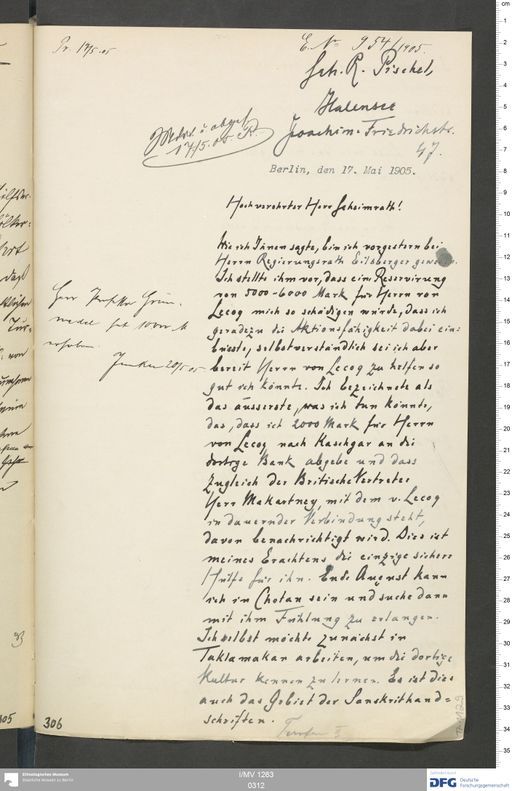 Pr. 19/5.05
E. No 954/1905.
Geh. R. Pischel,
Halensee
Joachim-Friedrichstr.
47.
17/5.05
Berlin, den 17. Mai 1905.
Hochverehrter Herr Geheimrath!
Wie ich Ihnen sagte, bin ich vorgestern bei
Herrn Regierungsrath Eilsberger gewesen.
Ich stellte ihm vor, dass eine Reservirung
von 5000-6000 Mark für Herrn von
Lecoq mich so schädigen würde, dass ich
geradezu die Aktionsfähigkeit dabei ein-
büsste, selbstverständlich sei ich aber
bereit Herrn von Lecoq zu helfen so
gut ich könnte. Ich bezeichnete als
das äusserste, was ich tun könnte,
das, dass ich 2000 Mark für Herrn
von Lecoq nach Kaschgar an die
dortige Bank abgebe und dass
zugleich der Britische Vertreter
Herr Makartney, mit dem v. Lecoq
in dauernder Verbindung steht,
davon benachrichtigt wird. Dies ist
meines Erachtens die einzige sichere
Hülfe für ihn. Ende August kann
ich in Chotan sein und suche dann
mit ihm Fühlung zu erlangen.
Ich selbst möchte zunächst in
Taklamakan arbeiten, um die dortige
Kultur kennen zu lernen. Es ist dies
auch das Gebiet der Sanskrithand=
schriften.
Herr Professor Grün-
wedel hat 10000 M
erhoben.
20/5 05
Turfan
306
I/MV 1263
0312
Ethnologisches Museum
Staatliche Museen zu Berlin
Gefördert durch
DFG Deutsche
Forschungsgemeinschaft